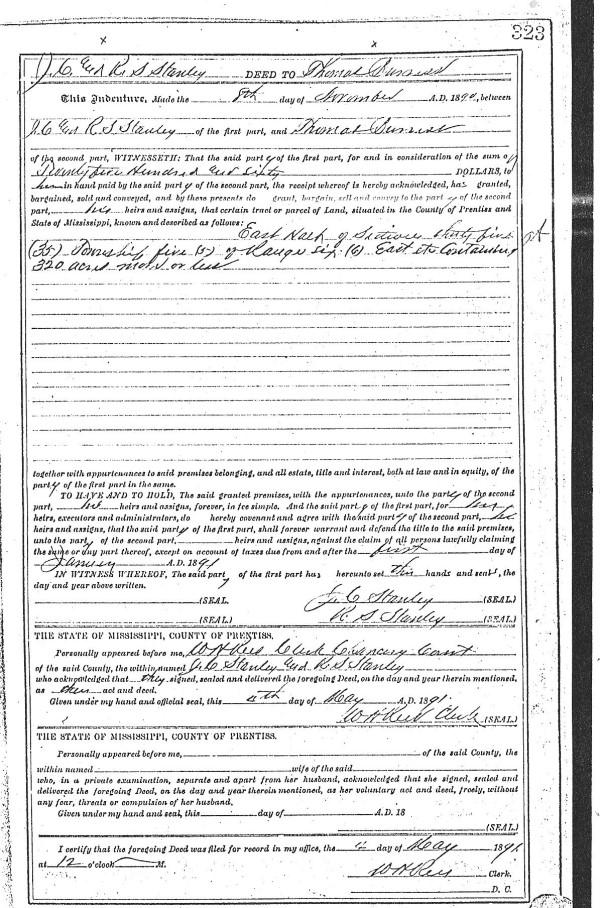 323
J. C. and R. S. Stanley DEED TO Thomas
This Indenture, Made the 8th day of November A.D. 1890, between
J. C. and R. S. Stanley of the first part, and Thomas
of the second part, WITNESSETH: That the said party of the first part, for and in consideration of the sum of
Twenty five Hundred and sixty DOLLARS, to
in hand paid by the said party of the second part, the receipt whereof is hereby acknowledged, has granted,
bargained, sold and conveyed, and by these presents do grant, bargain, sell and convey to the party of the second
part, his heirs and assigns, that certain tract or parcel of Land, situated in the County of Prentiss and
State of Mississippi, known and described as follows:
East Half of Section thirty five
(35) Township five (5) of Range six (6) East etc Containing
320 acres more or less
together with appurtenances to said premises belonging, and all estate, title and interest, both at law and in equity, of the
party of the first part in the same.
TO HAVE AND TO HOLD, The said granted premises, with the appurtenances, unto the party of the second
part, heirs and assigns, forever, in fee simple. And the said party of the first part, for
heirs, executors and administrators, do hereby covenant and agree with the said party of the second part,
heirs and assigns, that the said party of the first part, shall forever warrant and defend the title to the said premises,
unto the party of the second part, heirs and assigns, against the claim of all persons lawfully claiming
the same or any part thereof, except on account of taxes due from and after the first day of
January A.D. 1891
IN WITNESS WHEREOF, The said party of the first part has hereunto set this hands and seals, the
day and year above written.
(SEAL. J. C. Stanley (SEAL.)
(SEAL.) R. S. Stanley (SEAL.)
THE STATE OF MISSISSIPPI, COUNTY OF PRENTISS.
Personally appeared before me, W H Rees Clerk Chancery Court
of the said County, the within named J. C. Stanley and R. S. Stanley
who acknowledged that they signed, sealed and delivered the foregoing Deed, on the day and year therein mentioned,
as their act and deed.
Given under my hand and official seal, this day of May A.D. 1891.
W H Rees Clerk (SEAL)
THE STATE OF MISSISSIPPI, COUNTY OF PRENTISS.
Personally appeared before me, of the said County, the
within named wife of the said
who, in a private examination, separate and apart from her husband, acknowledged that she signed, sealed and
delivered the foregoing Deed, on the day and year therein mentioned, as her voluntary act and deed, freely, without
any fear, threats or compulsion of her husband.
Given under my hand and seal, this day of A.D. 18
(SEAL.)
I certify that the foregoing Deed was filed for record in my office, the 4 day of May 1891
at 12 o'clock M.
W H Rees Clerk.
D. C.